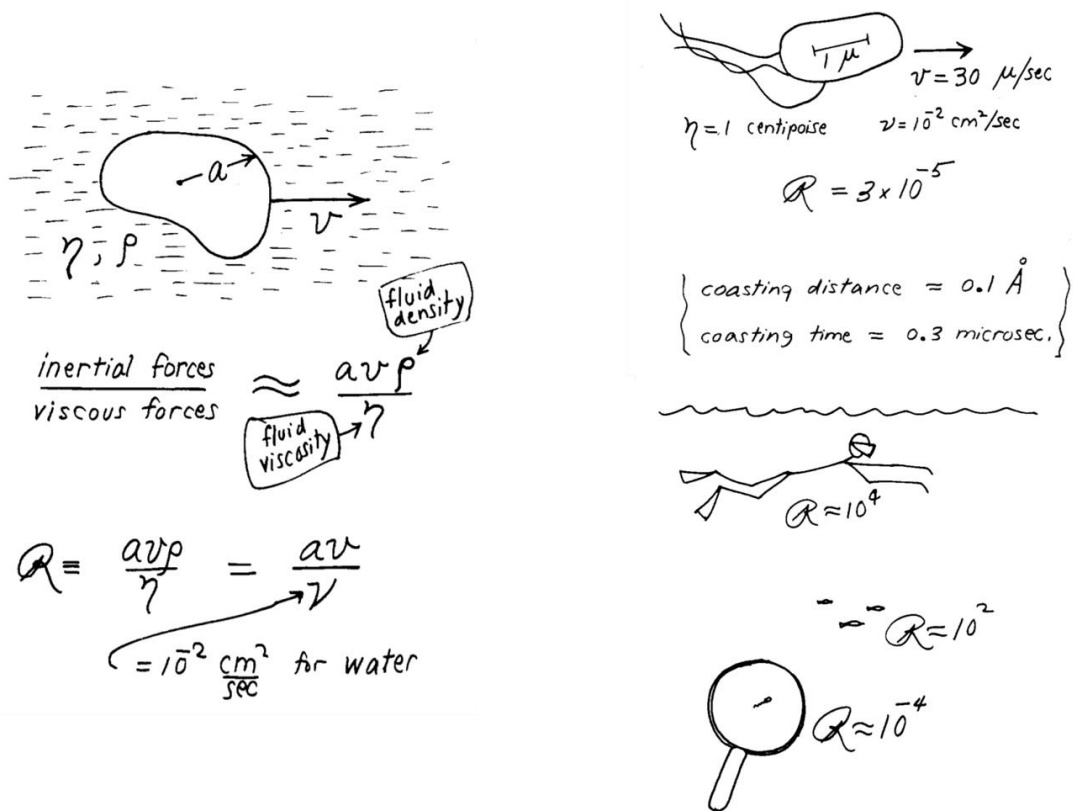 a
v
η, ρ
fluid
density
inertial forces
viscous forces
≈
avρ
η
fluid
viscosity
R ≡ avρ/η = av/ν
= 10⁻² cm²/sec for water
1 μ
v = 30 μ/sec
η = 1 centipoise ν = 10⁻² cm²/sec
R = 3 × 10⁻⁵
coasting distance = 0.1 Å
coasting time = 0.3 microsec.
R ≈ 10⁴
R ≈ 10²
R ≈ 10⁻⁴